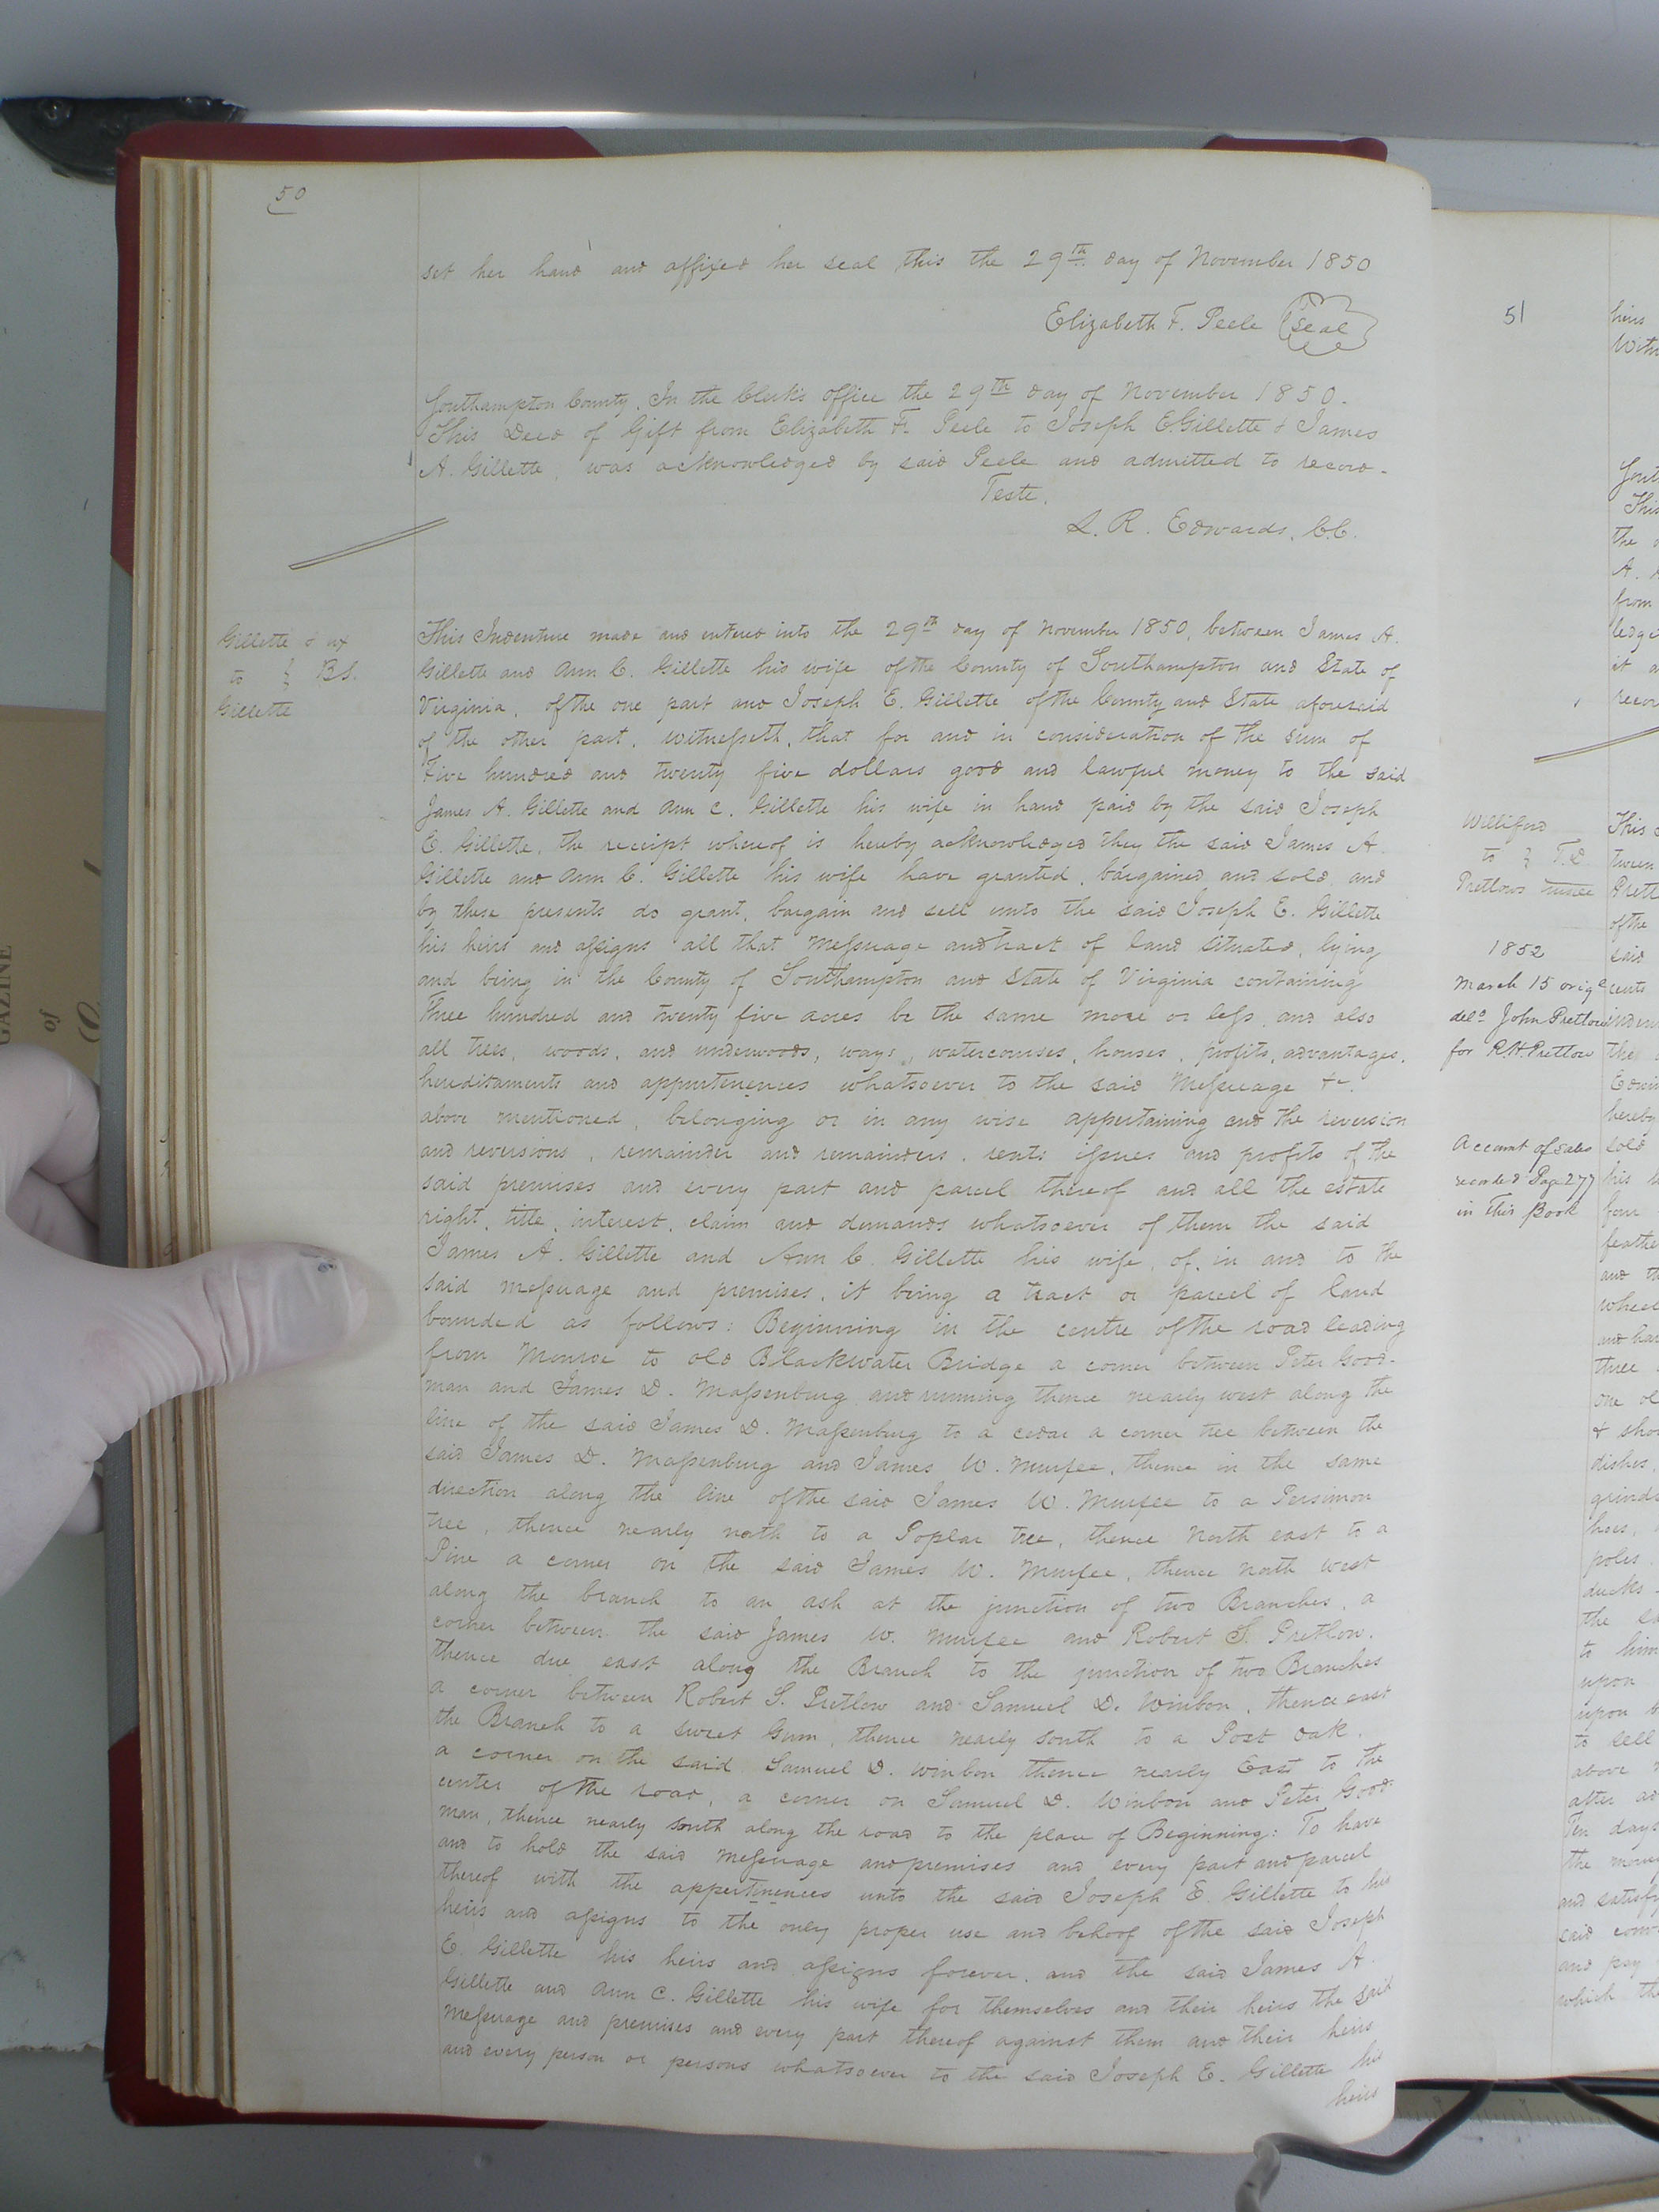 50
set her hand and affixed her seal this the 29th day of November 1850
Elizabeth F. Peele (Seal)
Southampton County, In the Clerk's office the 29th day of November 1850.
This Deed of Gift from Elizabeth F. Peele to Joseph E. Gillette & James
A. Gillette, was acknowledged by said Peele and admitted to record.
Teste,
L. R. Edwards, C.C.
Gillette & ux
to } B.S.
Gillette
This Indenture made and entered into the 29th day of November 1850, between James A.
Gillette and Ann C. Gillette his wife of the County of Southampton and State of
Virginia, of the one part and Joseph E. Gillette of the County and State aforesaid
of the other part, witnesseth, that for and in consideration of the sum of
Five hundred and twenty five dollars good and lawful money to the said
James A. Gillette and Ann C. Gillette his wife in hand paid by the said Joseph
E. Gillette, the receipt whereof is hereby acknowledged they the said James A.
Gillette and Ann C. Gillette his wife have granted, bargained and sold, and
by these presents do grant, bargain and sell unto the said Joseph E. Gillette
his heirs and assigns all that Messuage and tract of land situated, lying
and being in the County of Southampton and State of Virginia containing
Three hundred and twenty five acres be the same more or less, and also
all trees, woods, and underwoods, ways, watercourses, houses, profits, advantages,
hereditaments and appurtenences whatsoever to the said Messuage &c.
above mentioned, belonging or in any wise appertaining and the reversion
and reversions, remainder and remainders, rents issues and profits of the
said premises and every part and parcel thereof and all the estate
right, title, interest, claim and demands whatsoever of them the said
James A. Gillette and Ann C. Gillette his wife, of, in and to the
said messuage and premises, it being a tract or parcel of land
bounded as follows: Beginning in the centre of the road leading
from Monroe to old Blackwater Bridge a corner between Peter Good-
man and James D. Massenburg and running thence nearly west along the
line of the said James D. Massenburg to a cedar a corner tree between the
said James D. Massenburg and James W. Murfee, thence in the same
direction along the line of the said James W. Murfee to a Persimon
tree, thence nearly north to a Poplar tree, thence North east to a
Pine a corner on the said James W. Murfee, thence North west
along the branch to an ash at the junction of two Branches, a
corner between the said James W. Murfee and Robert S. Pretlow.
thence due east along the Branch to the junction of two Branches
a corner between Robert S. Pretlow and Samuel D. Winbon, thence east
the Branch to a sweet Gum, thence nearly south to a Post oak,
a corner on the said Samuel D. Winbon thence nearly East to the
center of the road, a corner on Samuel D. Winbon and Peter Good-
man, thence nearly south along the road to the place of Beginning: To have
and to hold the said Messuage and premises and every part and parcel
thereof with the appertinences unto the said Joseph E. Gillette to his
heirs and assigns to the only proper use and behoof of the said Joseph
E. Gillette his heirs and assigns forever, and the said James A.
Gillette and Ann C. Gillette his wife for themselves and their heirs the said
Messuage and premises and every part thereof against them and their heirs
and every person or persons whatsoever to the said Joseph E. Gillette his
heirs
51
Williford
to } T.D.
Pretlows
1852
March 15 orig
del. John Pretlow
for R.H. Pretlow
Account of sales
recorded Page 277
in this Book
heirs
This
the
A.
from
it
This
of the
said
the
hereby
sold
his
four
and
three
one
dishes,
poles
ducks
the
to him
upon
upon
to sell
above
after
Ten days
the money
and satisfy
said
and pay
which the
GAZINE
of